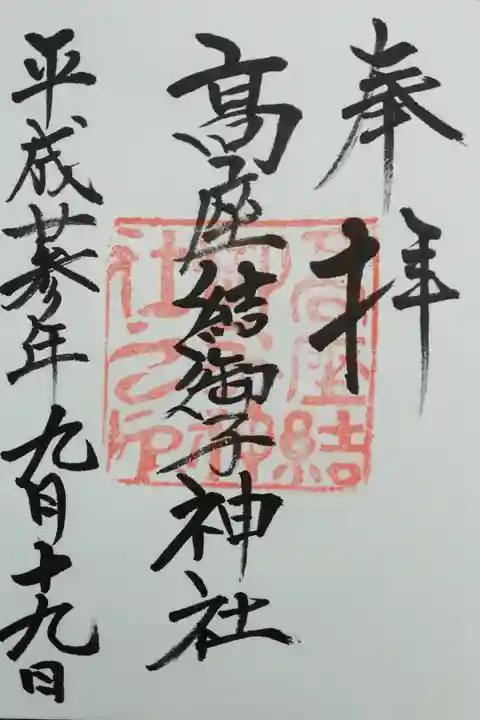 奉拝
髙座結御子神社
平成廿参年九月十九日
高座結
御子神
社之印